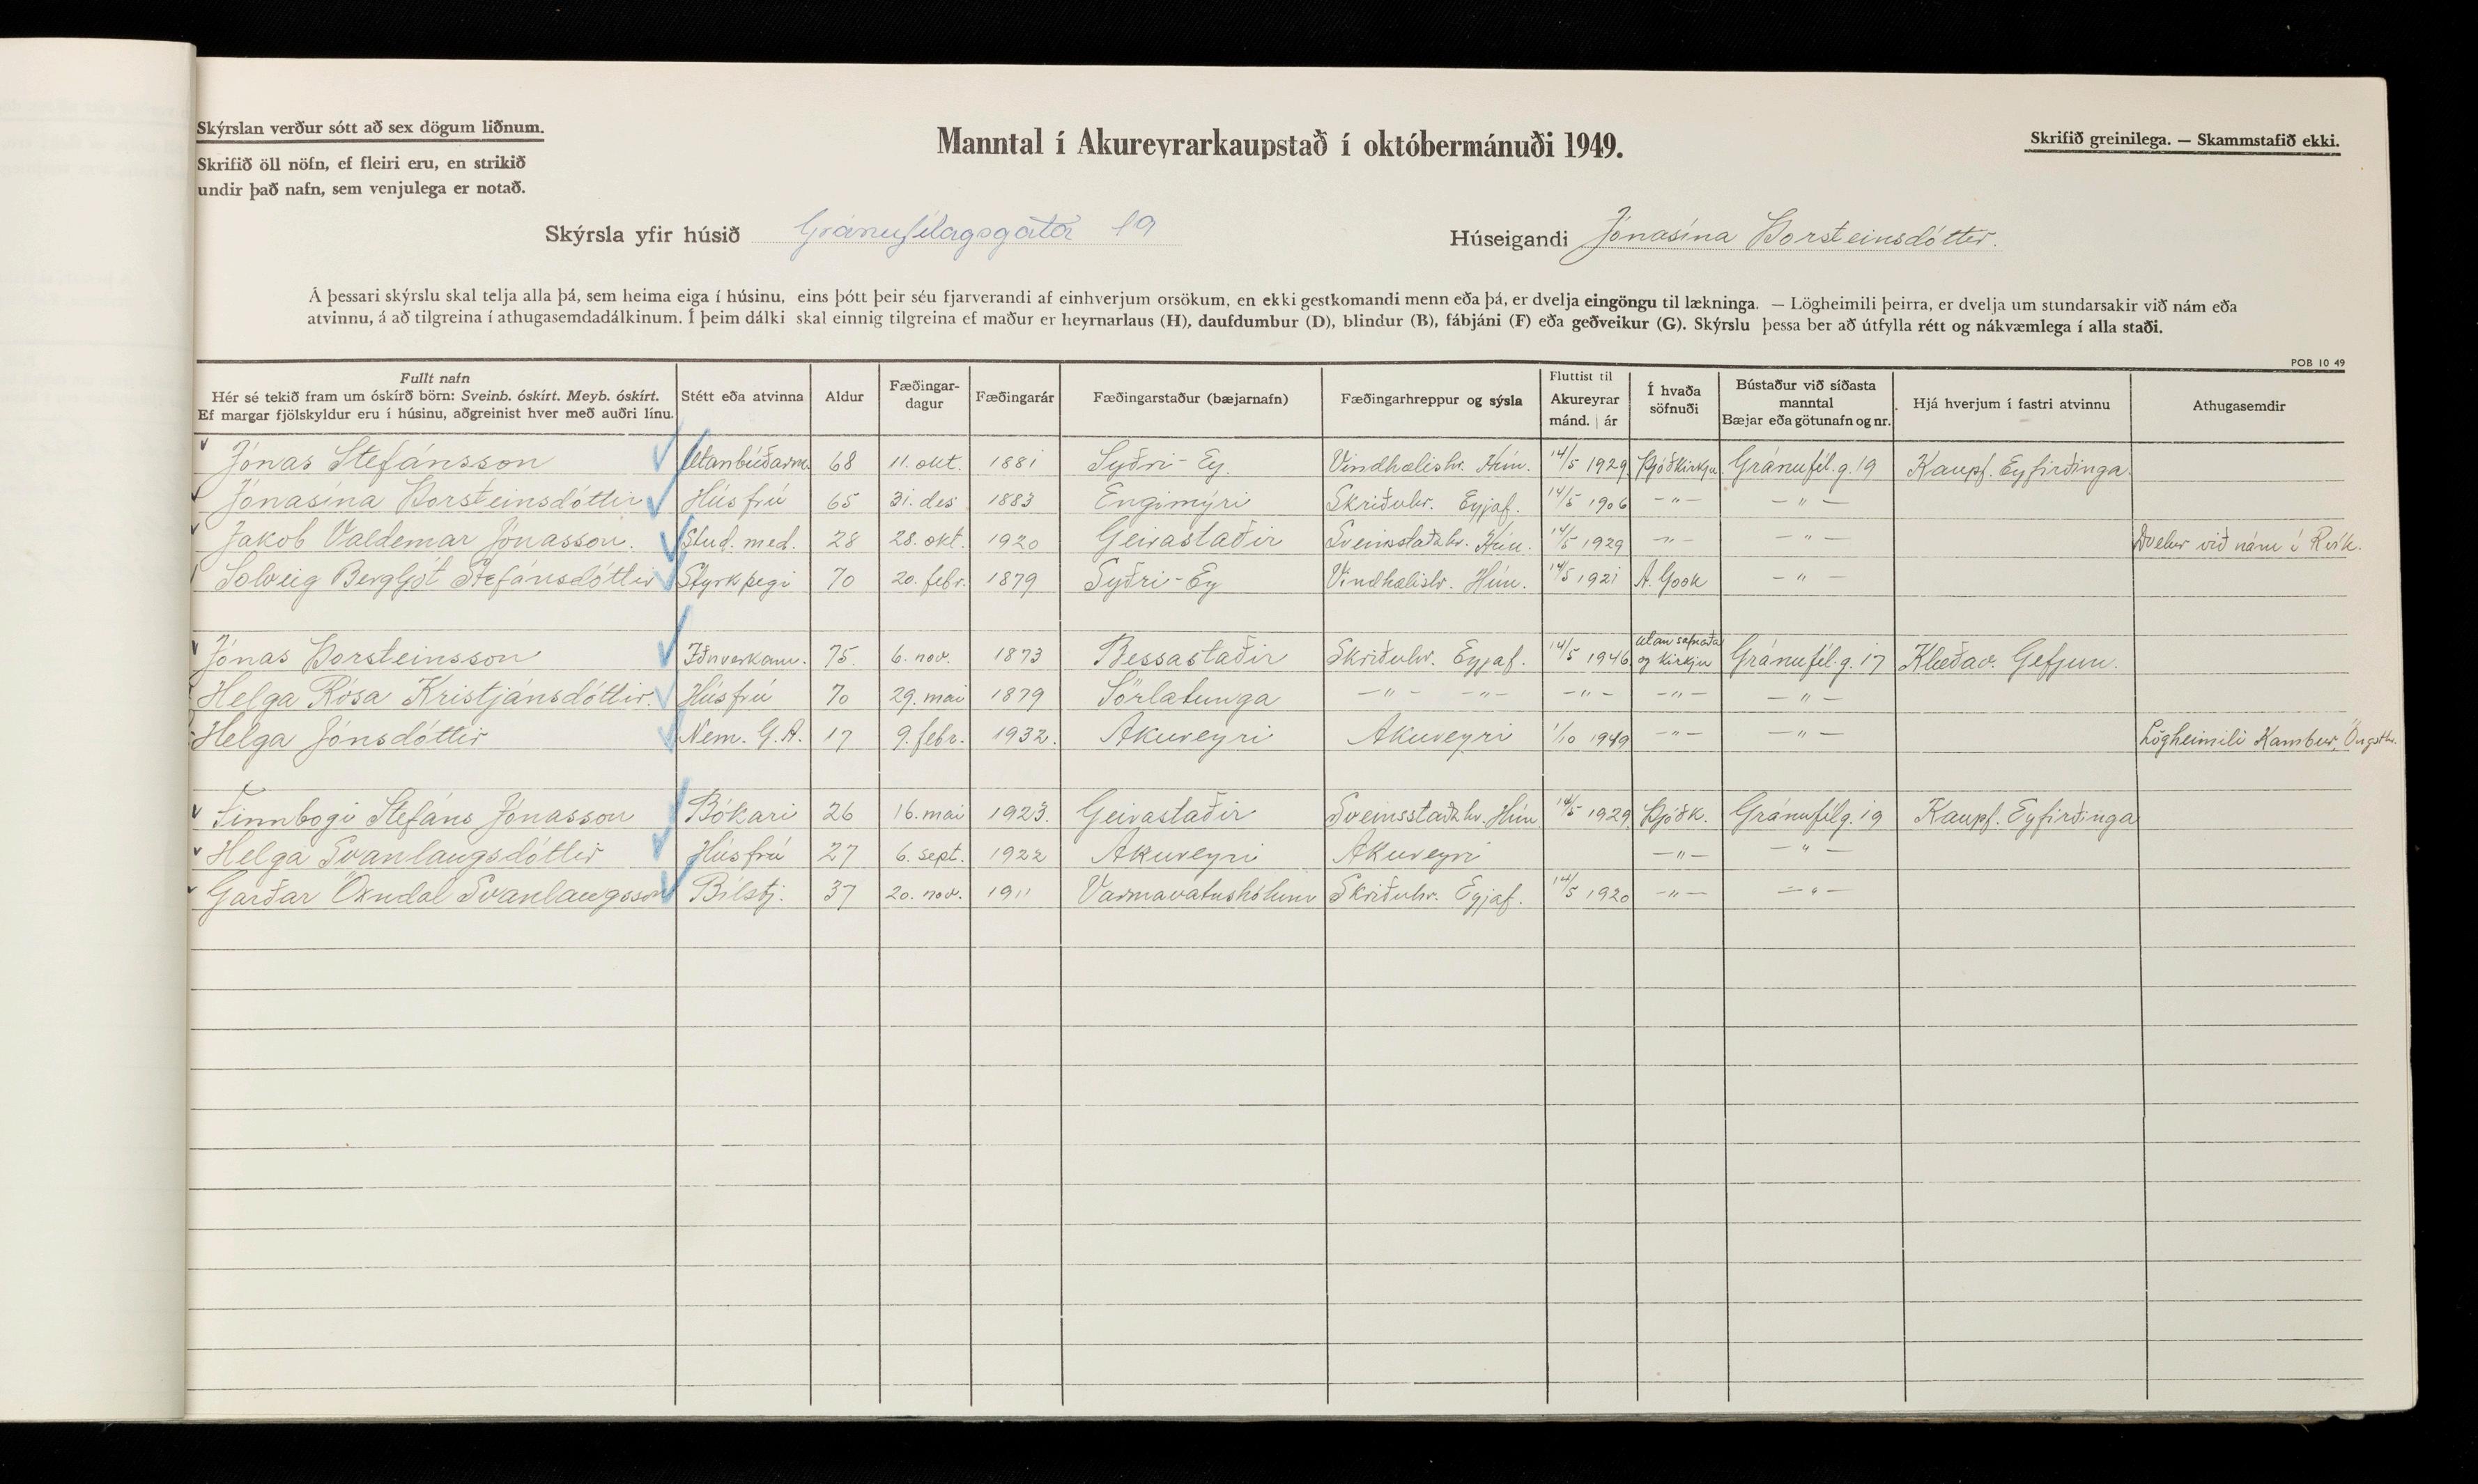 Skýrslan verður sótt að sex dögum liðnum.
Skrifið öll nöfn, ef fleiri eru, en strikið
undir það nafn, sem venjulega er notað.
Manntal í Akureyrarkaupstað í októbermánuði 1949.
Skrifið greinilega. — Skammstafið ekki.
Skýrsla yfir húsið Gránufélagsgata 19
Húseigandi Jónasína Þorsteinsdóttir.
Á þessari skýrslu skal telja alla þá, sem heima eiga í húsinu, eins þótt þeir séu fjarverandi af einhverjum orsökum, en ekki gestkomandi menn eða þá, er dvelja eingöngu til lækninga. — Lögheimili þeirra, er dvelja um stundarsakir við nám eða
atvinnu, á að tilgreina í athugasemdadálkinum. Í þeim dálki skal einnig tilgreina ef maður er heyrnarlaus (H), daufdumbur (D), blindur (B), fábjáni (F) eða geðveikur (G). Skýrslu þessa ber að útfylla rétt og nákvæmlega í alla staði.
POB 10 49
Fullt nafn
Hér sé tekið fram um óskírð börn: Sveinb. óskírt. Meyb. óskírt.
Ef margar fjölskyldur eru í húsinu, aðgreinist hver með auðri línu.
Stétt eða atvinna
Aldur
Fæðingar-
dagur
Fæðingarár
Fæðingarstaður (bæjarnafn)
Fæðingarhreppur og sýsla
Fluttist til
Akureyrar
mánd. | ár
Í hvaða
söfnuði
Bústaður við síðasta
manntal
Bæjar eða götunafn og nr.
Hjá hverjum í fastri atvinnu
Athugasemdir
Jónas Stefánsson Utanbúðarm. 68 11. okt. 1881 Syðri-Ey. Vindhælishr. Hún. 14/5 1929 Þjóðkirkju Gránufél.g. 19 Kaupf. Eyfirðinga.
Jónasína Þorsteinsdóttir Húsfrú 65 31. des 1883 Engimýri Skriðuhr. Eyjaf. 14/5 1906 —"— —"—
Jakob Valdemar Jónasson. Stud. med. 28 28. okt. 1920 Geirastaðir Sveinsstaðahr. Hún. 14/5 1929 —"— —"— Dvelur við nám í Rvík.
Solveig Bergljót Stefánsdóttir Styrkþegi 70 20. febr. 1879 Syðri-Ey Vindhælishr. Hún. 14/5 1921 A. Gook —"—
Jónas Þorsteinsson Iðnverkam. 75. 6. nov. 1873 Bessastaðir Skriðuhr. Eyjaf. 14/5 1946 utan safnaða
og kirkju Gránufél.g. 17 Klæðav. Gefjun.
Helga Rósa Kristjánsdóttir. Húsfrú 70 29. mai 1879 Sörlatunga —"— —"— —"— —"— —"—
Helga Jónsdóttir Nem. G.A. 17 9. febr. 1932. Akureyri Akureyri 1/10 1949 —"— —"— Lögheimili Kambur, Öngsthr.
Finnbogi Stefáns Jónasson Bókari 26 16. mai 1923. Geirastaðir Sveinsstaðahr. Hún 14/5 1929 Þjóðk. Gránufélg. 19 Kaupf. Eyfirðinga
Helga Svanlaugsdóttir Húsfrú 27 6. sept. 1922 Akureyri Akureyri —"— —"—
Garðar Öxndal Svanlaugsson Bílstj. 37 20. nov. 1911 Varmavatnshólum Skriðuhr. Eyjaf. 14/5 1920 —"— —"—